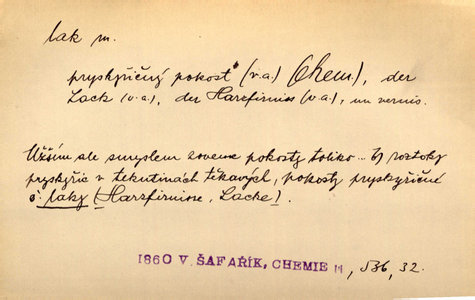 lak m.
pryskyřičný pokost (v.a.) Chem.), der
Lack (v.a.), der Harzfirniss (v.a.), un vernis.
Užším ale smyslem zoveme pokosty toliko .. b) roztoky
pryskyřic v tekutinách těkavých, pokosty pryskyřičné
č. laky (Harzfirnisse, Lacke).
1860 V. ŠAFAŘÍK, CHEMIE II, 536, 32.